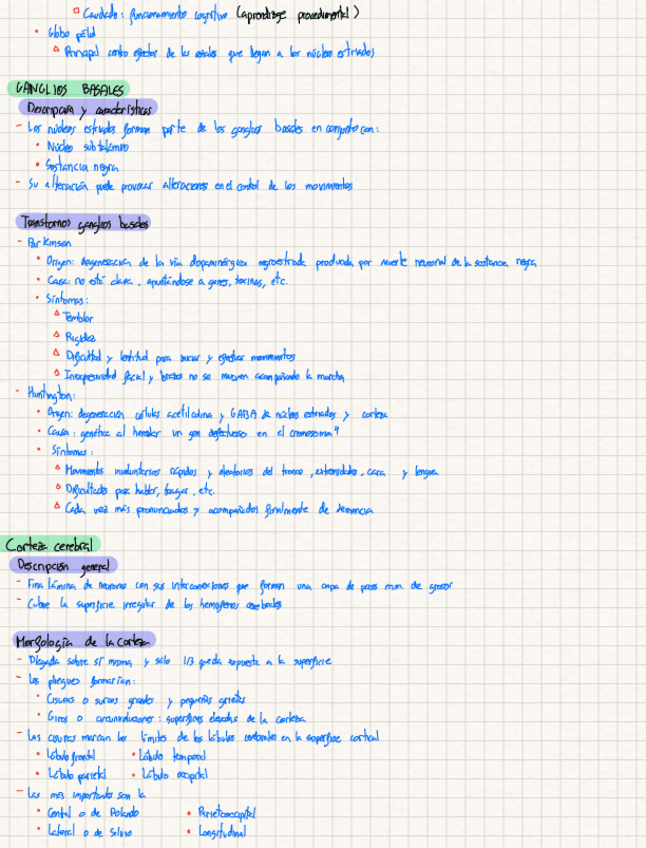 Caudado: funcionamiento cognitivo (aprendizaje procedimental)
Globo pálido
Principal centro efector de las señales que llegan a los núcleos estriados
GANGLIOS BASALES
Descripción y características
- Los núcleos estriados forman parte de los ganglios basales en conjunto con:
Núcleo subtalámico
Sustancia negra
- Su alteración puede provocar alteraciones en el control de los movimientos
Transtornos ganglios basales
- Parkinson
Origen: degeneración de la vía dopaminérgica nigroestriada producida por muerte neuronal de la sustancia negra
Causa: no está clara, apuntándose a genes, toxinas, etc.
Síntomas:
Temblor
Rigidez
Dificultad y lentitud para iniciar y efectuar movimientos
Inexpresividad facial y brazos no se mueven acompañando la marcha
- Huntington:
Origen: degeneración células acetilcolina y GABA de núcleos estriados y corteza
Causa: genética al heredar un gen defectuoso en el cromosoma 4
Síntomas:
Movimientos involuntarios rápidos y aleatorios del tronco, extremidades, cara y lengua
Dificultades para hablar, tragar, etc.
Cada vez más pronunciados y acompañados finalmente de demencia
Corteza cerebral
Descripción general
- Fina lámina de neuronas con sus interconexiones que forman una capa de pocos mm. de grosor
- Cubre la superficie irregular de los hemisferios cerebrales
Morfología de la corteza
- Plegada sobre sí misma y sólo 1/3 queda expuesta a la superficie
- Los pliegues formarían:
Cisuras o surcos grandes y pequeñas grietas
Giros o circunvoluciones: superficies elevadas de la corteza
- Las cisuras marcan los límites de los lóbulos cerebrales en la superficie cortical
Lóbulo frontal Lóbulo temporal
Lóbulo parietal Lóbulo occipital
- Las más importantes son la
Central o de Rolando Parietooccipital
Lateral o de Silvio Longitudinal